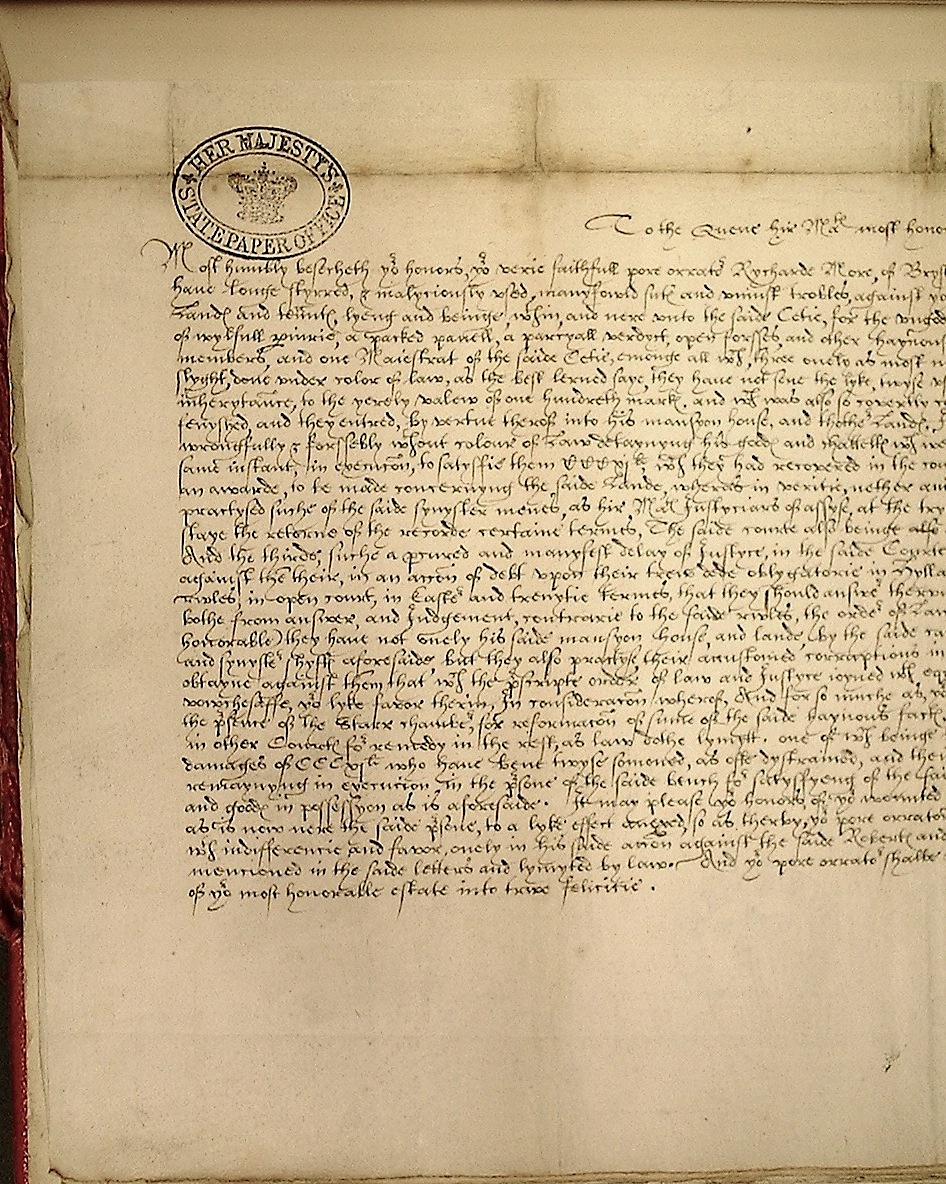 HER MAJESTY'S STATE PAPER OFFICE
To the Quene hir Matꝭ most hono
Most humbly besecheth yor honors, yor verie faithfull pore orrator Rycharde More, of Brys
have longe styrred, & malyciously vsed, manyfowld sutꝭ and vniust trobles, against yo
Landꝭ and tenntꝭ, lyeng and beinge, wthin, and nere vnto the saide Cetie, for the
of wylfull periurie, a packed panell, a parcyall verdyct, open forsses, and other haynous
members, and one Maiestrat of the saide Cetie, emonge all wch, three onely as most
slyght, done vnder color of law, as the best lerned saye, they have not sene the lyke, twyse
inherytance, to the yerely valew of one hundreth markꝭ. and wch was also so covertly
and they entred, by vertue therof into his mansyon house, and thother Landꝭ,
wrongfully & forssebly wthout colour of Law detaynyng his goodꝭ and chattellꝭ wch we
same instant, in execucon, to satysfie them CCCxjli, wch they had recovered in the co
an awarde, to be made concernyng the saide Lande, wheras in veritie, nether
practysed suche of the saide synyster menes, as hir Matꝭ Justyciars of assyse, at the try
staye the retorne of the recorde certaine termes, The saide courte also beinge also
And the thirde, suche a pcured and manyfest delay of Justyce, in the saide Courte
against them their, in an accon of debt vpon their owne dede oblygatorie in Hylla
Rwles, in open court, in Easter and trenytie termes, that they should answer
bothe from answer, and Judgement, contrarie to the saide rwles, the order of Law
honorable) they have not onely his saide mansyon house, and lande, by the saide
and synyster shyftꝭ aforesaide, but they also practyse their accustomed corruptions in
obtayne against them that, wch the pscripte order of law and Justyce ioyned wth eq
vowchesaffe, yor lyke favor therin, In consideracon wherof, And for so muche as
the psence of the Starr chamber, for reformacon of suche of the saide haynous factꝭ
in other Courtꝭ for remedy in the rest, as law dothe lymytt. one of wch beinge
damages of CCCxjli who have bene twyse somoned, as ofte dystrained, and then
remaynyng in execucion, in the psone of the saide bench for satysfyeng of the sai
and goodꝭ in possessyon as is aforesaide. It may please yor honors of yor wounted
as is now nere the saide psone, to a lyke effect so as therby, yor pore orrator
wth indifferencie and favor, onely in his saide accon against the saide Robertꝭ and
mencioned in the saide letters and lymyted by law. And yor pore orrator shalbe
of yor most honorable estate into trwe felicitie.